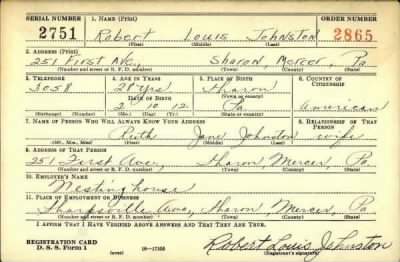 SERIAL NUMBER 1. NAME (Print) ORDER NUMBER
2751 Robert Louis Johnston 2865
(First) (Middle) (Last)
2. ADDRESS (Print)
251 First Ave, Sharon, Mercer, Pa
(Number and street or R. F. D. number) (Town) (County) (State)
3. TELEPHONE 4. AGE IN YEARS 5. PLACE OF BIRTH 6. COUNTRY OF CITIZENSHIP
3058 28 Yrs Sharon
DATE OF BIRTH (Town or county)
2 10 12 Pa American
(Exchange) (Number) (Mo.) (Day) (Yr.) (State or country)
7. NAME OF PERSON WHO WILL ALWAYS KNOW YOUR ADDRESS 8. RELATIONSHIP OF THAT PERSON
Ruth Jane Johnston wife
(Mr., Mrs., Miss) (First) (Middle) (Last)
9. ADDRESS OF THAT PERSON
251 First Ave, Sharon, Mercer, Pa
(Number and street or R. F. D. number) (Town) (County) (State)
10. EMPLOYER'S NAME
Westinghouse
11. PLACE OF EMPLOYMENT OR BUSINESS
Sharpsville Ave, Sharon, Mercer, Pa
(Number and street or R. F. D. number) (Town) (County) (State)
I AFFIRM THAT I HAVE VERIFIED ABOVE ANSWERS AND THAT THEY ARE TRUE.
REGISTRATION CARD Robert Louis Johnston
D. S. S. Form 1 (over) 16—17105 (Registrant's signature)